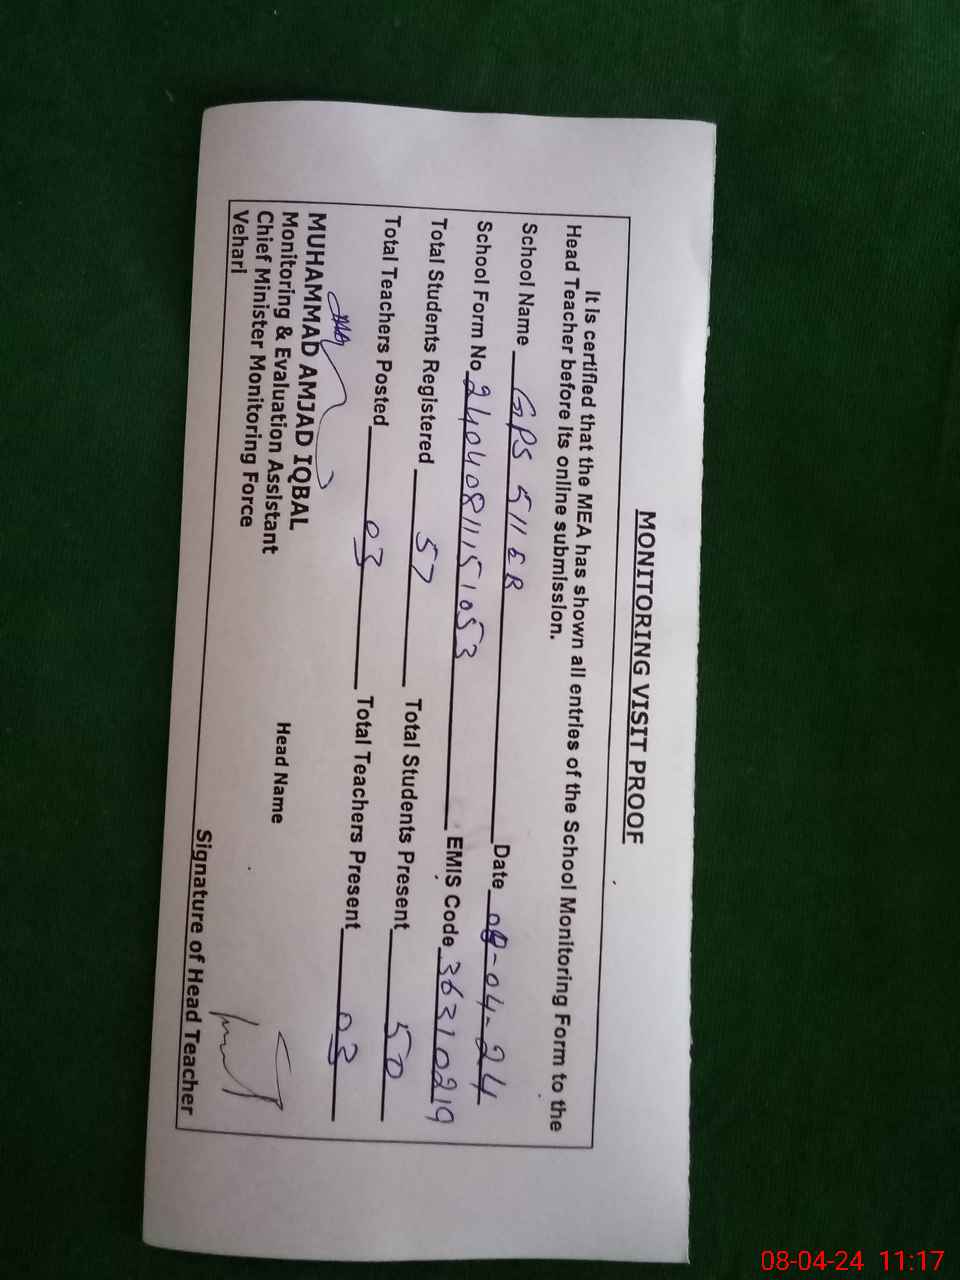 MONITORING VISIT PROOF
It is certified that the MEA has shown all entries of the School Monitoring Form to the
Head Teacher before its online submission.
School Name GPS 511 EB Date 08-04-24
School Form No 24040811151053 EMIS Code 36310219
Total Students Registered 57 Total Students Present 50
Total Teachers Posted 03 Total Teachers Present 03
MUHAMMAD AMJAD IQBAL
Monitoring & Evaluation Assistant Head Name
Chief Minister Monitoring Force
Vehari
Signature of Head Teacher
08-04-24 11:17